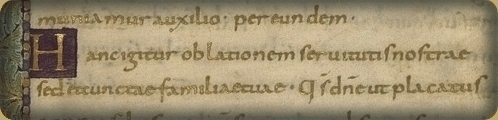 muniamur auxilio · per eundem ·
Hanc igitur oblationem servitutis nostrae
sed et cunctae familiae tuae · Qs dne ut placatus